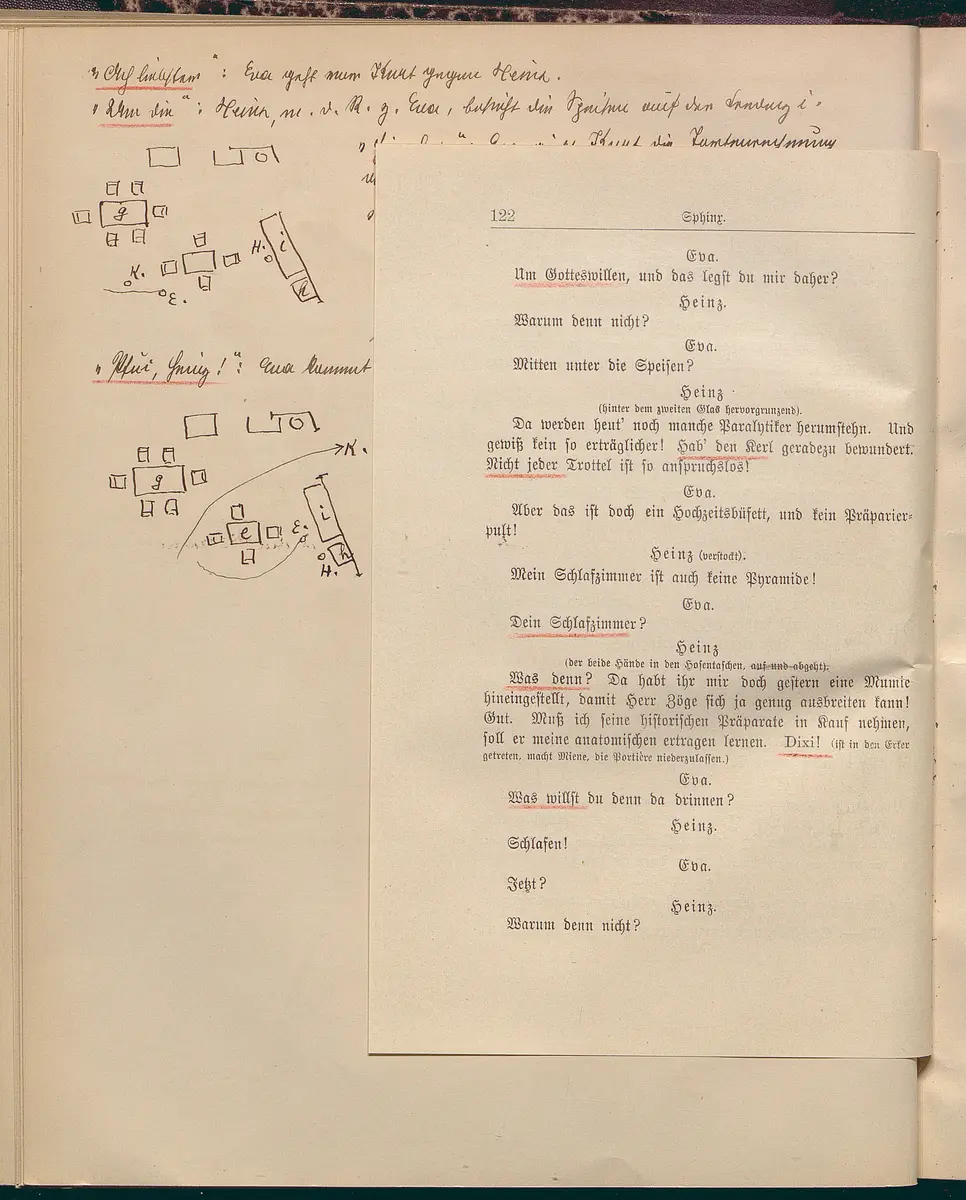 „Am liebsten“: Eva geht nun Kurt gegen Heinz.
„Um die“: Heinz, m. d. R. g. Eva, besieht die Speisen auf der Kredenz i.
Kurt die
g
H.
i
K.
E.
h
„Pfui, Heinz!“: Eva kommt
K.
g
e
E.
i
h
H.
122
Sphinx.
Eva.
Um Gotteswillen, und das legst du mir daher?
Heinz.
Warum denn nicht?
Eva.
Mitten unter die Speisen?
Heinz
(hinter dem zweiten Glas hervorgrunzend).
Da werden heut' noch manche Paralytiker herumstehn. Und
gewiß kein so erträglicher! Hab' den Kerl geradezu bewundert.
Nicht jeder Trottel ist so anspruchslos!
Eva.
Aber das ist doch ein Hochzeitsbüfett, und kein Präparier-
pult!
Heinz (verstockt).
Mein Schlafzimmer ist auch keine Pyramide!
Eva.
Dein Schlafzimmer?
Heinz
(der beide Hände in den Hosentaschen, auf und abgeht).
Was denn? Da habt ihr mir doch gestern eine Mumie
hineingestellt, damit Herr Zöge sich ja genug ausbreiten kann!
Gut. Muß ich seine historischen Präparate in Kauf nehmen,
soll er meine anatomischen ertragen lernen. Dixi! (ist in den Erker
getreten, macht Miene, die Portière niederzulassen.)
Eva.
Was willst du denn da drinnen?
Heinz.
Schlafen!
Eva.
Jetzt?
Heinz.
Warum denn nicht?